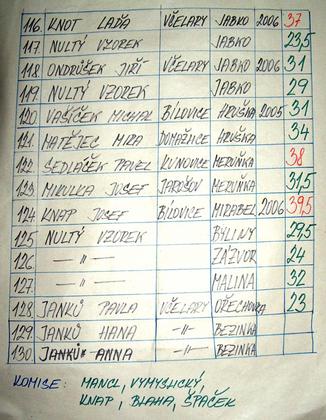 116. KNOT LAĎA VČELARY JABKO 2006 37
117. NULTÝ VZOREK JABKO 23,5
118. ONDRŮŠEK JIŘÍ VČELARY JABKO 2006 31
119. NULTÝ VZOREK JABKO 29
120. VAŠÍČEK MICHAL BÍLOVICE HRUŠKA 2005 31
121. MATĚJEC MIRA DOMAŽLICE HRUŠKA 34
122. SEDLÁČEK PAVEL KUNOVICE MERUŇKA 38
123. MIKULKA JOSEF JAROŠOV MERUŇKA 31,5
124. KNAP JOSEF BÍLOVICE MIRABEL 2006 39,5
125. NULTÝ VZOREK BYLINY 29,5
126. —"— ZÁZVOR 24
127. —"— MALINA 32
128. JANKŮ PAVLA VČELARY OŘECHOVKA 23
129. JANKŮ HANA —"— BEZINKA
130. JANKŮ ANNA —"— BEZINKA
KOMISE: MANCL, VYMYSLICKÝ,
KNAP, BLAHA, ŠPAČEK